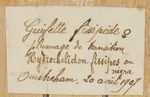 Guifette fissipède ♀
plumage de transition
Hydrochelidon fissipes ou
nigra
Ouistreham, 20 août 1907